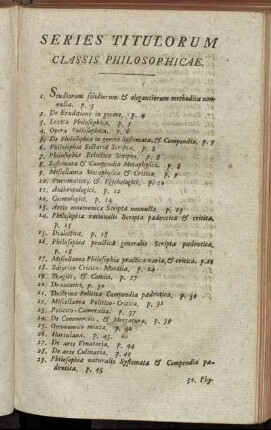 SERIES TITULORUM
CLASSIS PHILOSOPHICAE.
1. Studiorum solidiorum & elegantiorum methodica non-
nulla. p. 3
2. De Eruditione in genere, p. 4
3. Lexica Philosophica, p. 5
4. Opera Philosophica, p. 6
5. De Philosophia in genere Systemata, & Compendia, p. 7
6. Philosophiæ Sectariæ Scripta, p. 8
7. Philosophiæ Eclecticæ Scripta, p. 8
8. Systemata & Compendia Metaphysica, p. 8
9. Miscellanea Metaphysica & Critica, p. 9
10. Pneumatici, & Psychologici, p. 10
11. Anthropologici, p. 12
12. Cosmologici, p. 14
13. Artis mnemonicæ Scripta nonnulla, p. 15
14. Philosophiæ rationalis Scripta pædevtica & critica,
p. 15
15. Dialectica, p. 18
16. Philosophiæ practicæ generalis Scripta pædevtica,
p. 18
17. Miscellanea Philosophiæ practicæ varia, & critica, p. 18
18. Satyrica Critico-Moralia, p. 24
19. Tragici, & Comici. p. 27
20. Dramatici, p. 30
21. Doctrinæ Politicæ Compendia pædevtica, p. 30
22. Miscellanea Politico-Critica, p. 32
23. Politico-Cameralia, p. 37
24. De Commerciis, & Mercatura, p. 39
25. Oeconomica mixta, p. 41
26. Hortulana, p. 43.
27. De arte Venatoria, p. 44
28. De arte Culinaria, p. 45
29. Philosophiæ naturalis Systemata & Compendia pæ-
devtica, p. 45
30. Phy-